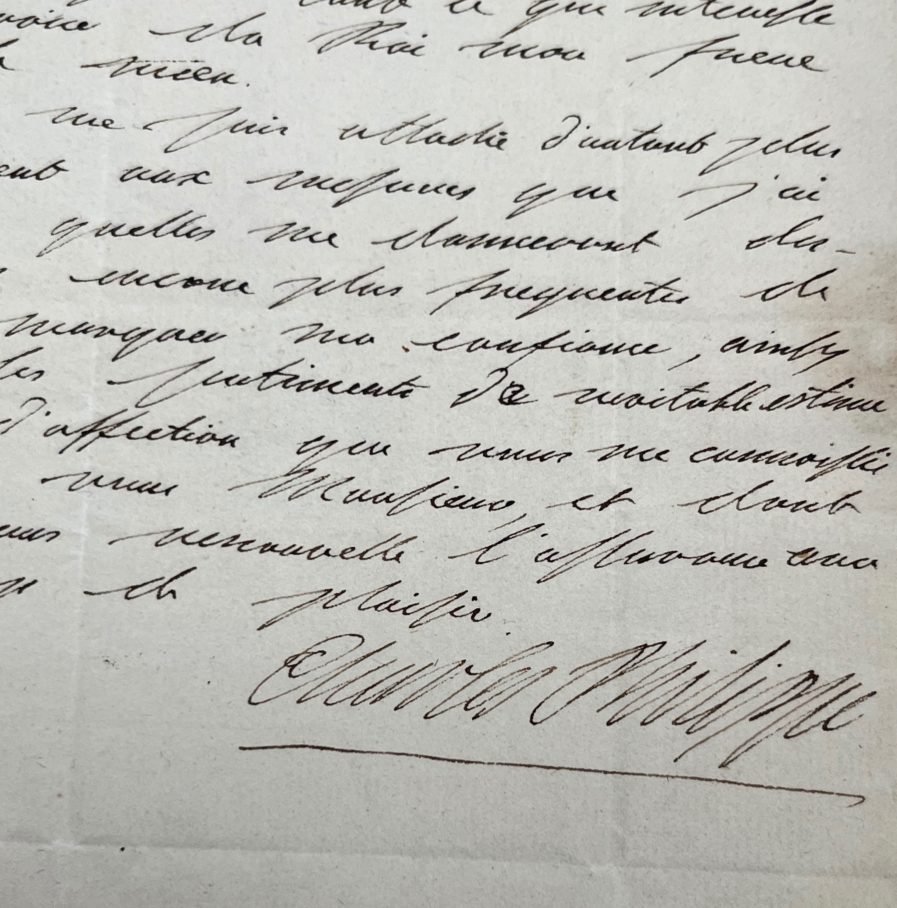 tout ce qui interesse
du Roi mon frere
mien.
me suis attaché d'autant plus
aux mesures que j'ai
quelles me donneront des-
encore plus frequentes de
marquer ma confiance, ainsy
les sentiments de veritable estime
d'affection que vous me connoissés
vous Monsieur, et dont
vous renouvelle l'assurance avec
de plaisir.
Charles Philippe